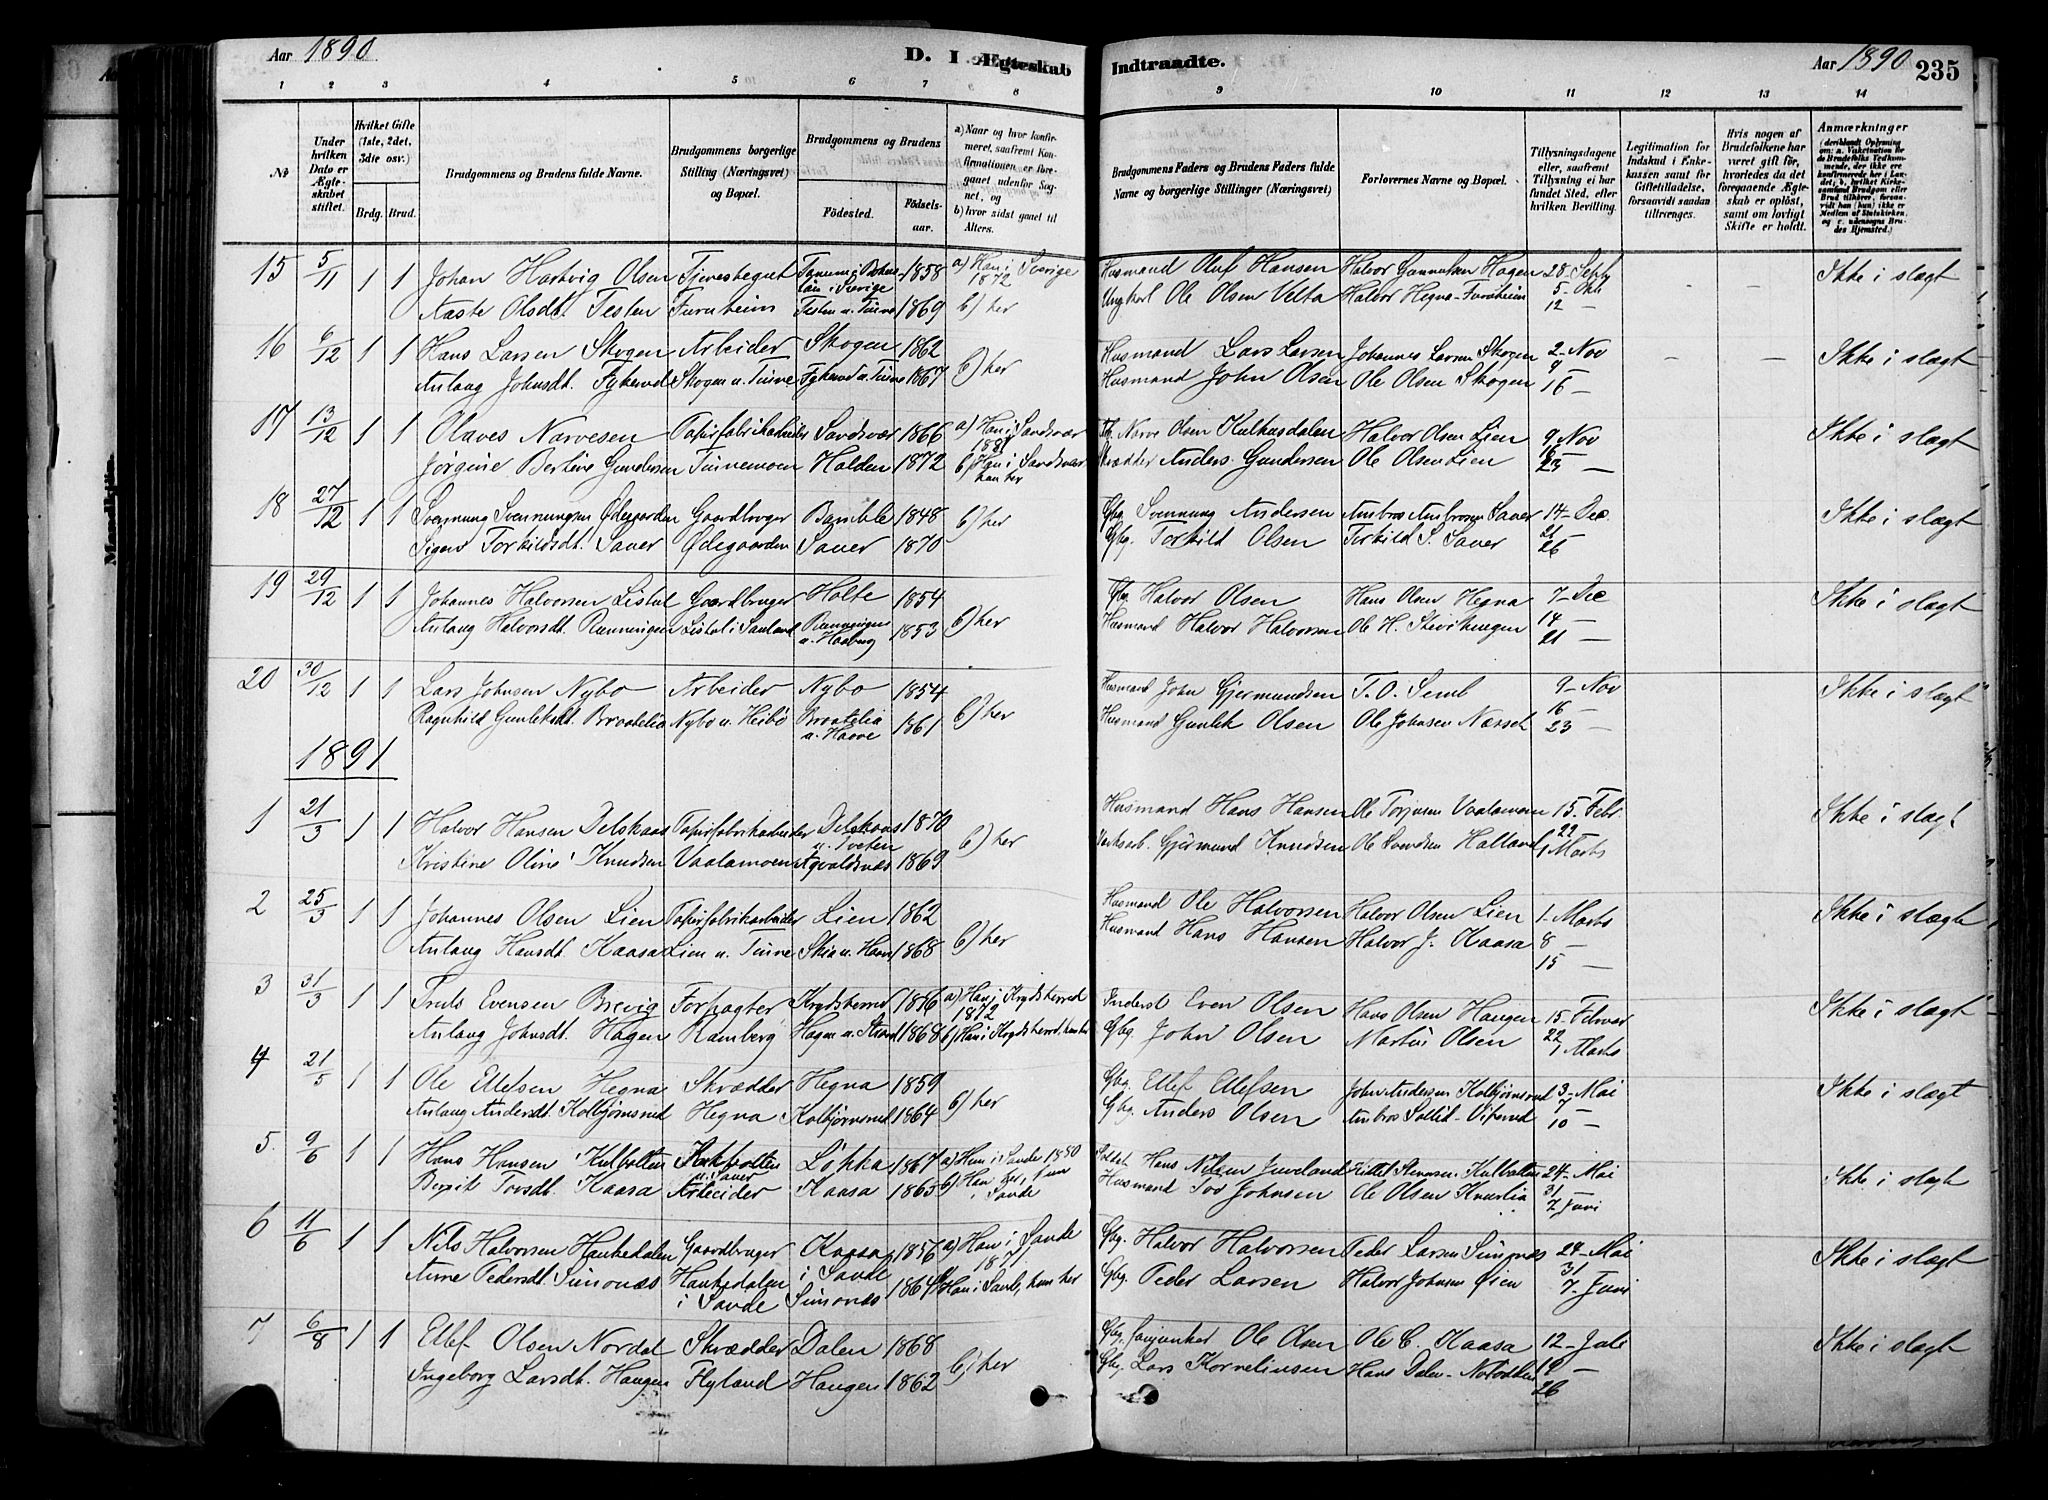 Aar 1890
D. I Ægteskab Indtraadte.
Aar 1890 235
1 2 3 4 5 6 7 8 9 10 11 12 13 14
№
Under hvilken Dato er Ægteskabet stiftet.
Hvilket Gifte (1ste, 2det, 3die osv.)
Brdg. Brud.
Brudgommens og Brudens fulde Navne.
Brudgommens borgerlige Stilling (Næringsvei) og Bopæl.
Brudgommens og Brudens
Fødested. Fødselsaar.
a) Naar og hvor konfirmeret, saafremt Konfirmationen er foregaaet udenfor Sognet, og
b) hvor sidst gaaet til Alters.
Brudgommens Faders og Brudens Faders fulde Navne og borgerlige Stillinger (Næringsvei)
Forlovernes Navne og Bopæl.
Tillysningsdagene eller, saafremt Tillysning ei har fundet Sted, efter hvilken Bevilling.
Legitimation for Indskud i Enkekassen samt for Giftetilladelse, forsaavidt saadan tiltrænges.
Hvis nogen af Brudefolkene har været gift før, hvorledes da det foregaaende Ægteskab er opløst, samt om lovligt Skifte er holdt.
Anmærkninger
15 5/11 1 1 Johan Hartvig Olsen Tjenestegut 1858 a) Han i Sverige 1872 Husmand Oluf Hansen Halvor Gunnulsen Hagen 28 Septb - - Ikke i slægt
Aaste Olsdt. Testen Furuheim Testen u. Tinne 1869 b) her Ungkarl Ole Olsen Velta Halvor Hegna Furuheim 5 - Okt
12 —
16 6/12 1 1 Hans Larsen Skogen Arbeider Skogen 1862 b) her Husmand Lars Larsen Johannes Larsen Skogen 2 - Nov - - Ikke i slægt
Anlaug Johnsdt. Fykerud Skogen u. Tinne Fykerud u. Tinne 1867 Husmand John Olsen Ole Olsen Skogen 9
16 —
17 13/12 1 1 Olaves Narvesen Papirfabrikarbeider Sandsvær 1866 a) Han i Sandsvær Narve Olsen Halvor Olsen Lien 9 Nov Ikke i slægt
Jørgine Bertine Gundersen Tinnemoen Halden 1872 b) Han i Sandsvær hun her Skrædder Anders Gundersen Ole Olsen Lien 16 —
23 —
18 27/12 1 1 Svennung Svennungsen Ødegaarden Gaardbruger Bamble 1848 b) her Gbg. Svennung Andersen Ambros Ambrosen Sauer 14 - Dec Ikke i slægt
Sigrid Torkildsdt. Sauer Ødegaarden Sauer 1870 Gbg. Torkild Olsen Torkild S. Sauer 21
26 —
19 29/12 1 1 Johannes Halvorsen Listul Gaardbruger Holte 1854 b) her Gbg. Halvor Olsen Hans Olsen Hegna 7 - Dec Ikke i slægt
Anlaug Halvorsdt. Rønningen Listul i Sauland Rønningen 1853 Husmand Halvor Halvorsen Ole H. 14 —
21 —
20 30/12 1 1 Lars Johnsen Nybo Arbeider Nybo 1854 b) her Husmand John Gjermundsen T. O. Semb 9 - Nov Ikke i slægt
Ragnhild Gunleksdt. Braatelia Nybo u. Heibø Braatelia u. Haave 1861 Husmand Gunlek Olsen Ole Johnsen Næsset 16 —
23 —
1891
1 21/3 1 1 Halvor Hansen Delskaas Papirfabrikarbeider Delskaas u. Tveten 1870 b) her Husmand Hans Hansen Ole Torjusen Vaalamoen 15 Febr. Ikke i slægt
Kristine Oline Knudsen Vaalamoen 1869 Gjermund Knudsen Ole Svendsen Halland 22
1 Marts
2 25/3 1 1 Johannes Olsen Lien Papirfabrikarbeider Lien 1862 b) her Husmand Ole Halvorsen Halvor Olsen Lien 1 - Marts Ikke i slægt
Anlaug Hansdt. Kaasa Lien u. Tinne 1868 Husmand Hans Hansen Halvor J. Kaasa 8 —
15 —
3 31/3 1 1 Truls Evensen Brevig Forpagter Krydsherred 1856 a) Han i Krydsherred 1872 Inderst Even Olsen Hans Olsen Haugen 15 - Februar Ikke i slægt
Anlaug Johnsdt. Hagen Ramberg 1868 b) Han i Krydsherred, hun her Gbg. John Olsen Martin Olsen 22
1 Marts
4 21/5 1 1 Ole Ellefsen Hegna Skrædder Hegna 1859 b) her Gbg. Ellef Ellefsen John Andersen Kolbjørnsrud 3 - Mai Ikke i slægt
Anlaug Andersdt. Kolbjørnsrud Hegna Kolbjørnsrud 1864 Gbg. Anders Olsen 7
10 —
5 9/6 1 1 Hans Hansen Kulbotten Kulbotten u. Sauer Løkka 1867 a) Han i Sande Hans Nilsen Juveland Kulbotten 24 - Mai Ikke i slægt
Birgit Torsdt. Kaasa Arbeider Kaasa 1865 b) Han her, hun i Sande Husmand Tor Johnsen Ole Olsen Knuslia 31
7 Juni
6 11/6 1 1 Nils Halvorsen Haukedalen Gaardbruger Kaasa i Sande 1856 a) Han i Sande 1871 Gbg. Halvor Halvorsen Peder Larsen Simonæs 24 - Mai Ikke i slægt
Anne Pedersdt. Simonæs Haukedalen i Sande Simonæs 1864 Han i Sande, hun her Gbg. Peder Larsen Halvor Johnsen Øien 31
7 - Juni
7 6/8 1 1 Ellef Olsen Nordal Skrædder Dalen 1868 b) her Ole Olsen Ole C. Kaasa 12 - Juli Ikke i slægt
Ingeborg Larsdt. Haugen Flyland Haugen 1862 Gbg. Lars Kornelinsen Hans Dalen - Notodden 19 —
26